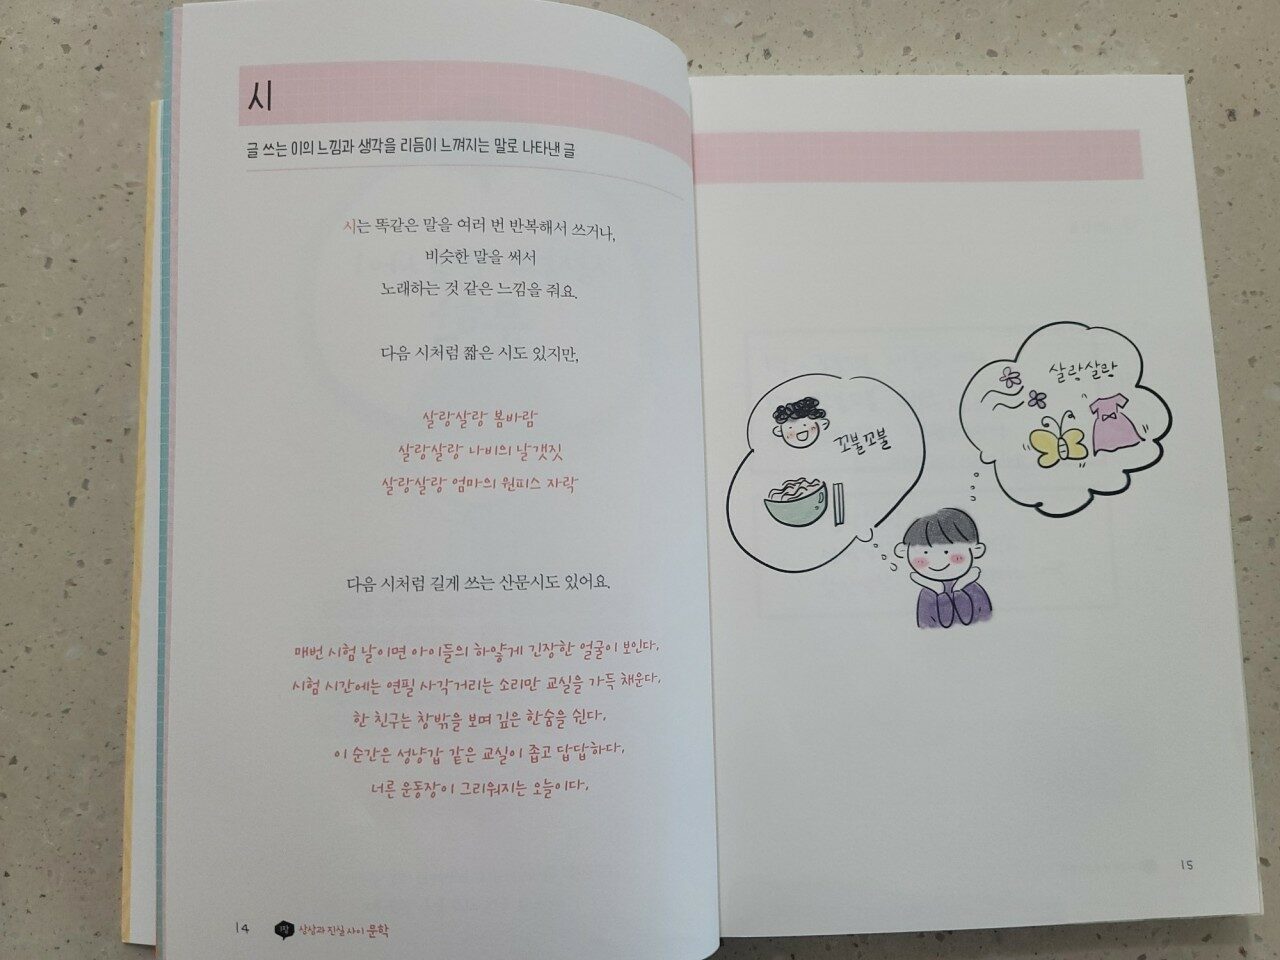 시
글 쓰는 이의 느낌과 생각을 리듬이 느껴지는 말로 나타낸 글
시는 똑같은 말을 여러 번 반복해서 쓰거나,
비슷한 말을 써서
노래하는 것 같은 느낌을 줘요.
다음 시처럼 짧은 시도 있지만,
살랑살랑 봄바람
살랑살랑 나비의 날갯짓
살랑살랑 엄마의 원피스 자락
다음 시처럼 길게 쓰는 산문시도 있어요.
매번 시험 날이면 아이들의 하얗게 긴장한 얼굴이 보인다.
시험 시간에는 연필 사각거리는 소리만 교실을 가득 채운다.
한 친구는 창밖을 보며 깊은 한숨을 쉰다.
이 순간은 성냥갑 같은 교실이 좁고 답답하다.
너른 운동장이 그리워지는 오늘이다.
14
1장 상상과 진실 사이 문학
꼬불꼬불
살랑살랑
15